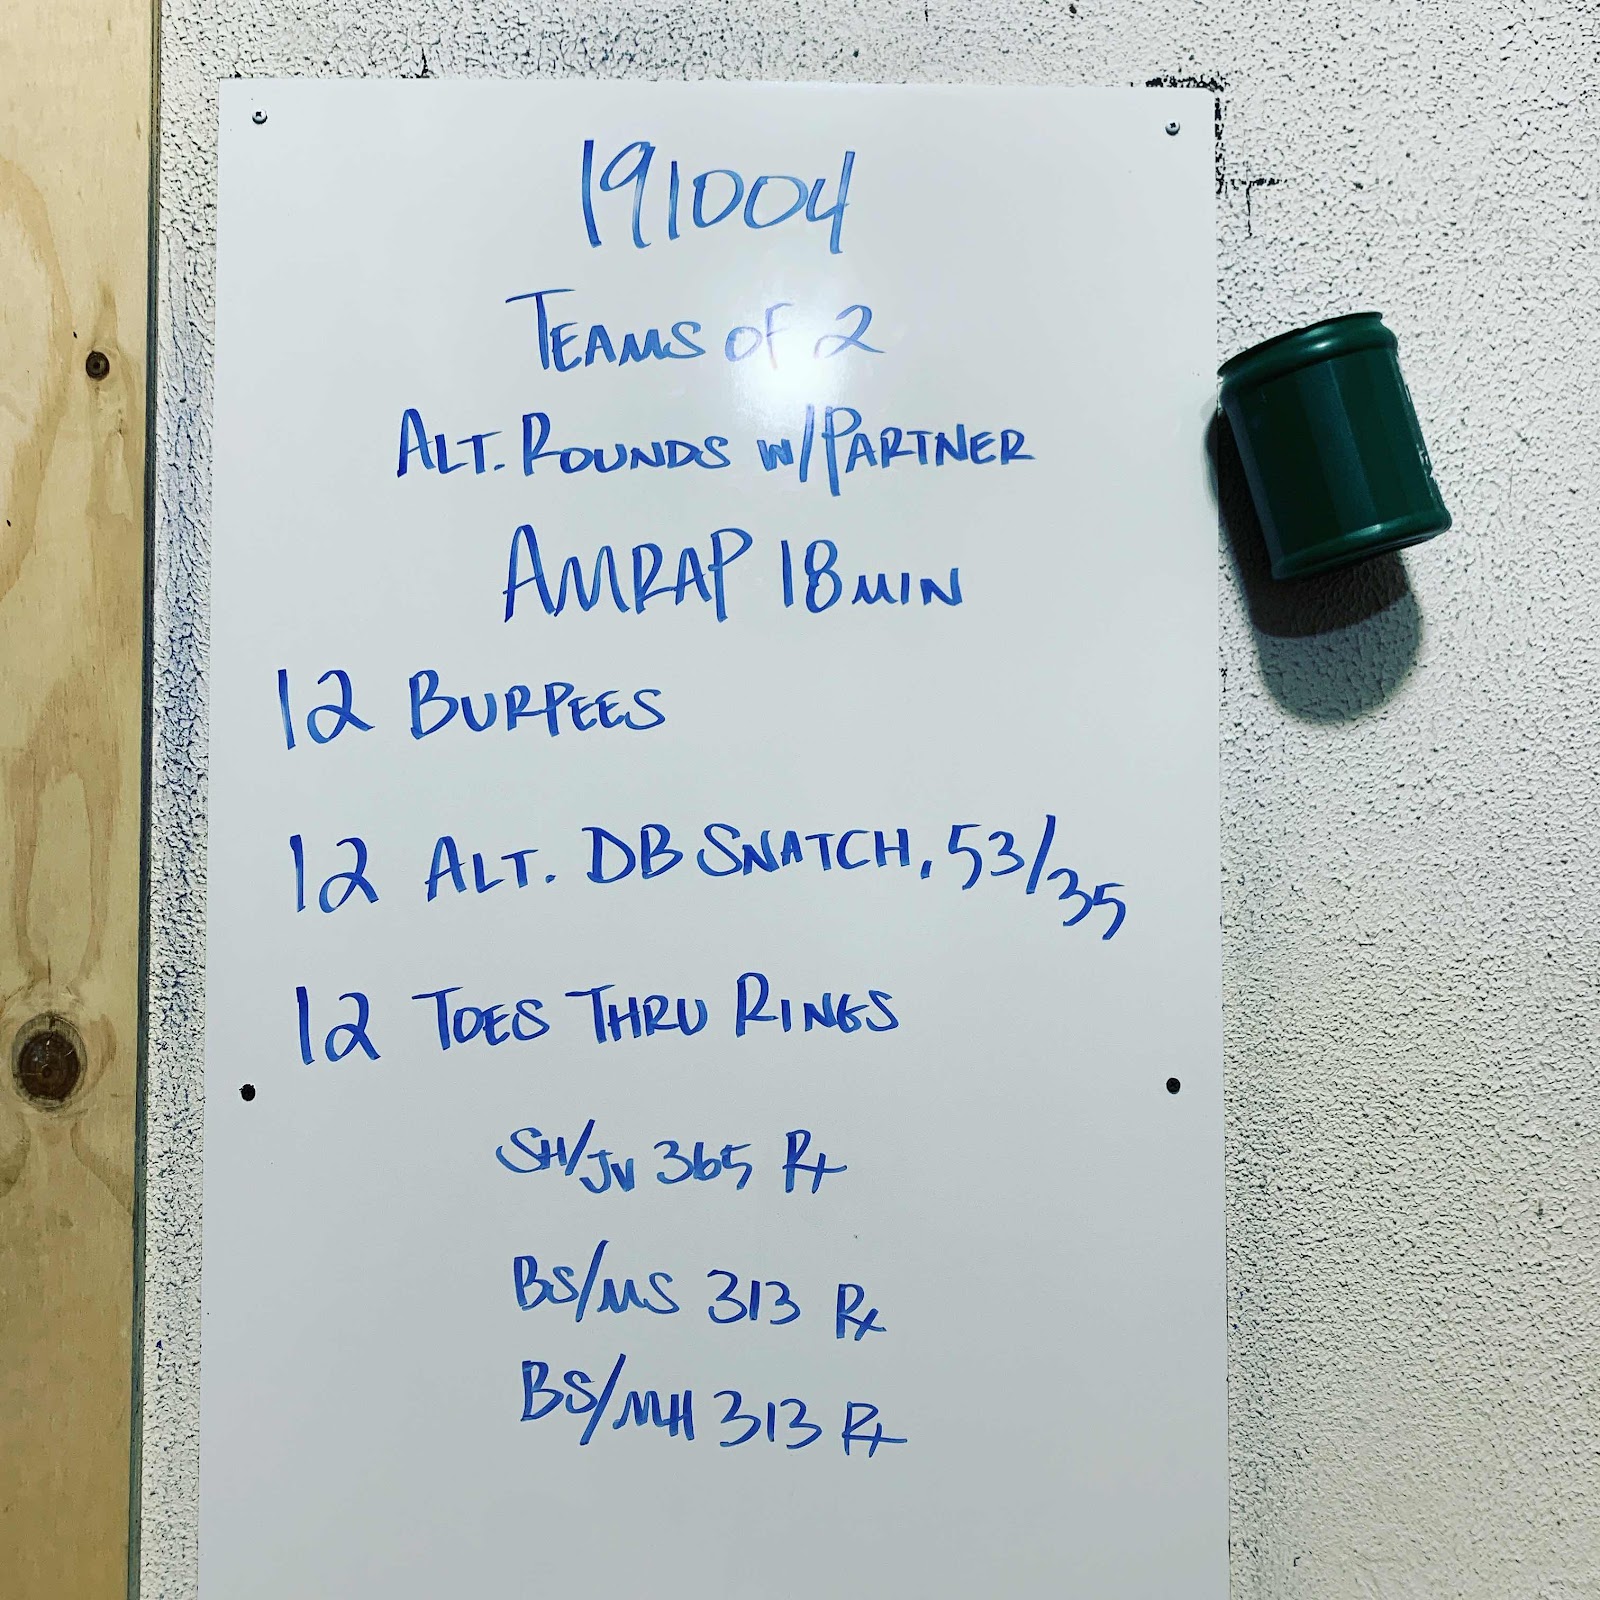 191004
TEAMS OF 2
ALT. ROUNDS W/PARTNER
AMRAP 18MIN
12 BURPEES
12 ALT. DB SNATCH, 53/35
12 TOES THRU RINGS
SH/JV 365 Rx
BS/MS 313 Rx
BS/MH 313 Rx